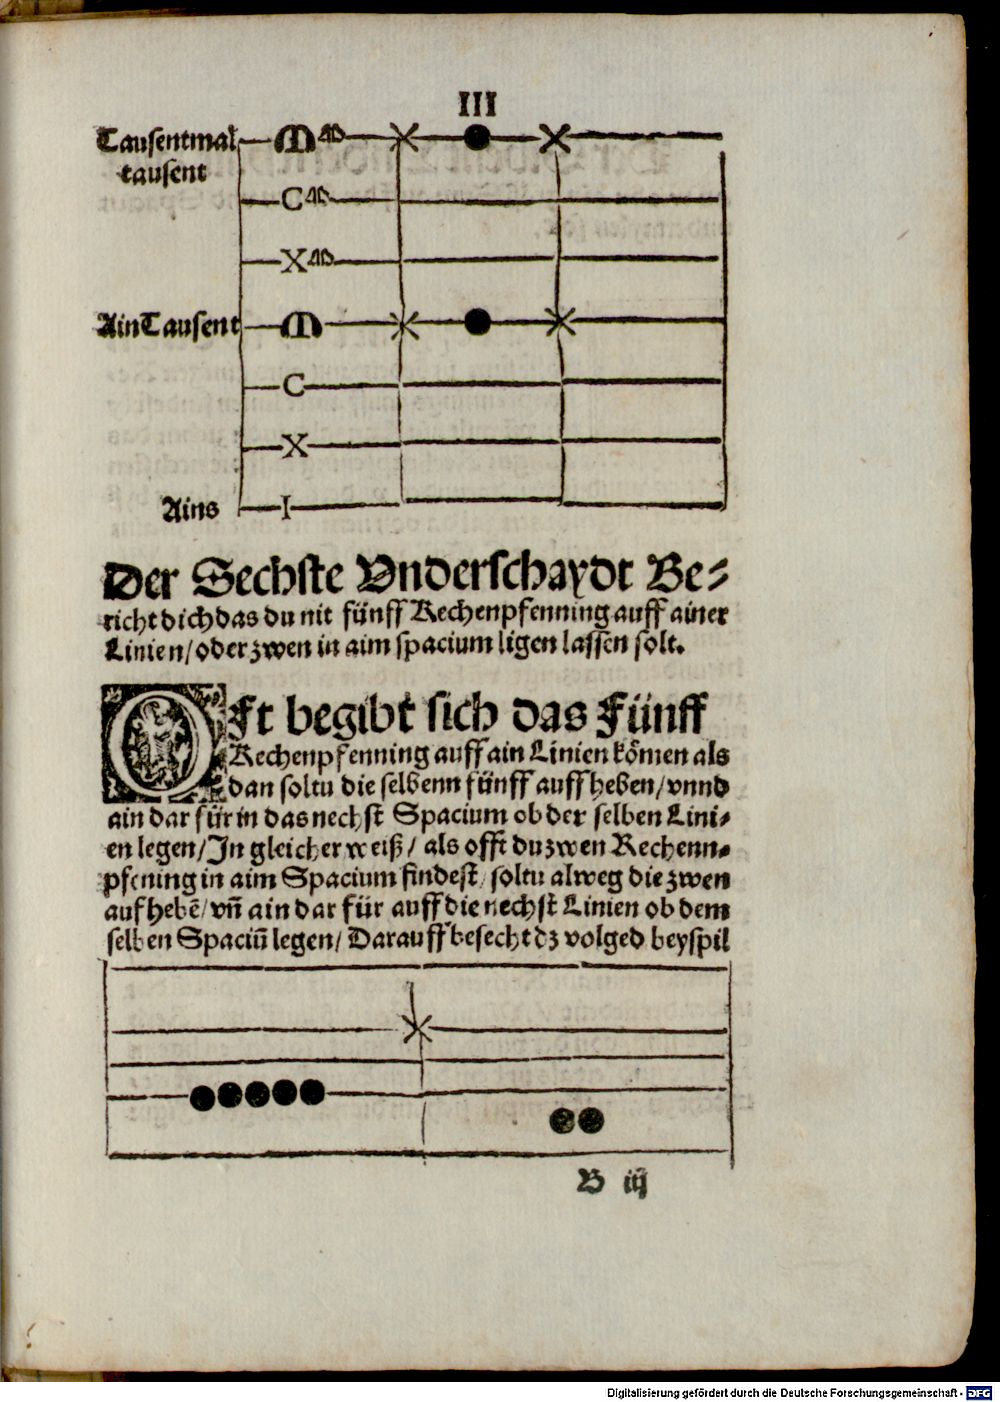 III
Tausentmal
tausent
M M
C M
X M
Ain Tausent
M
C
X
Ains
I
Der Sechste Vnderschaydt Be-
richt dich das du nit fünff Rechenpfenning auff ainer
Linien / oder zwen in aim spacium ligen lassen solt.
Oft begibt sich das Fünff
Rechenpfenning auff ain Linien kömen als
dan soltu die selbenn fünff auff heben / vnnd
ain dar für in das nechst Spacium ob der selben Lini-
en legen / In gleicher weiß / als offt du zwen Rechenn-
pfening in aim Spacium findest / soltu alweg die zwen
auf hebē / vn̄ ain dar für auff die nechst Linien ob dem
selben Spaciū legen / Darauff besecht dz volged beyspil
B iij
Digitalisierung gefördert durch die Deutsche Forschungsgemeinschaft - DFG